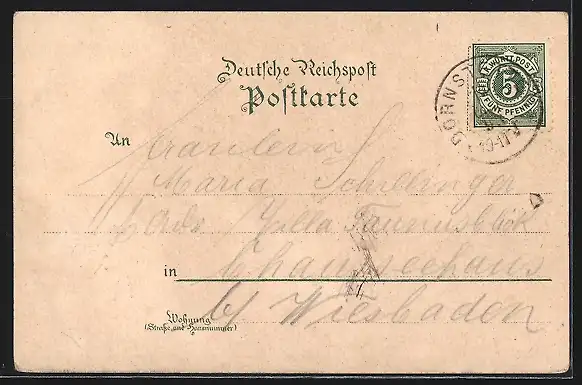 Deutsche Reichspost
Postkarte
K. WÜRTT. POST
5
FÜNF PFENNIG
DORNST
9-11
An Fräulein
Maria Schillinger
Villa Taunusblick
in Chausseehaus
b/ Wiesbaden
Wohnung
(Straße und Hausnummer)